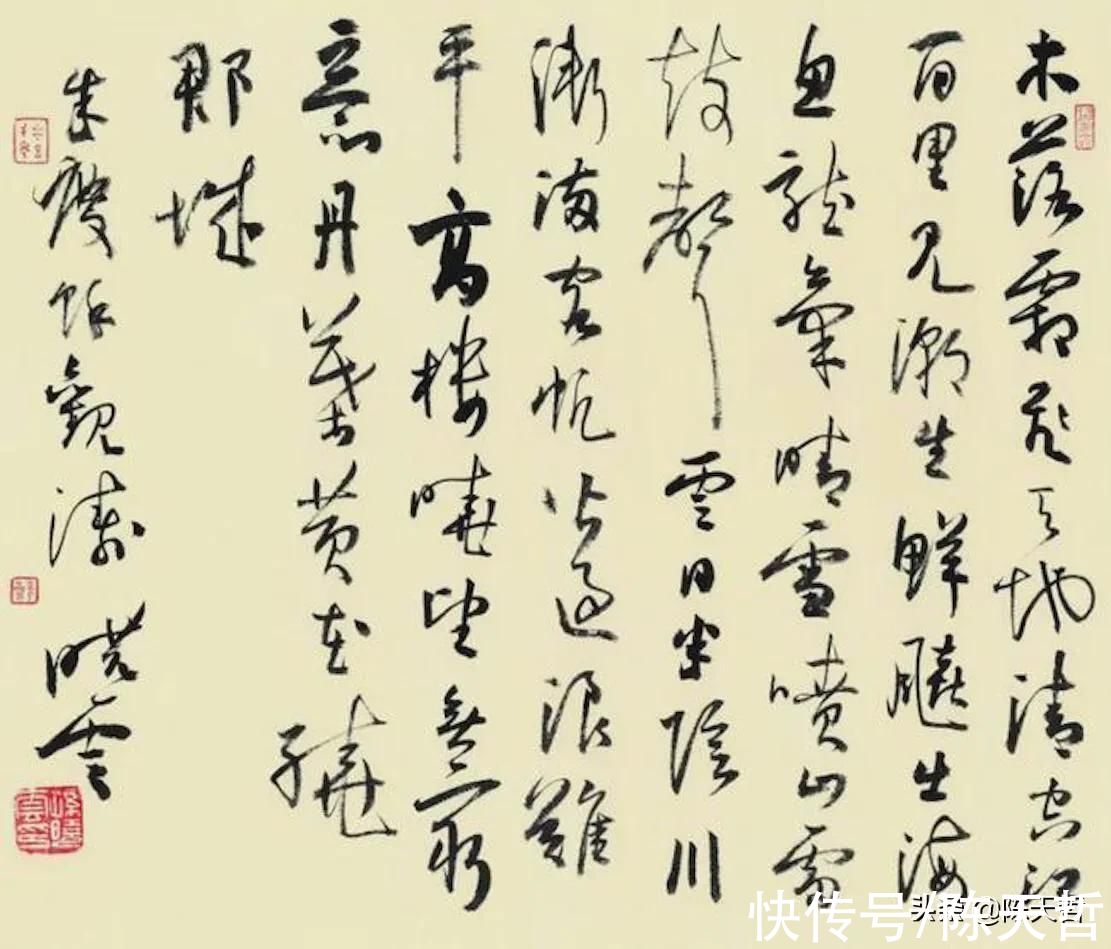 木落霜飛天地清空江
百里見潮生鮮飈出海
魚龍氣晴雪噴山雷
鼓聲雲日半陰川
漸滿客帆皆過浪難
平高樓曉望無窮
意丹葉黄花繞
郡城
朱慶餘觀濤 曉雲
孫曉雲印
头条 @陈天哲
快传号/陈天哲